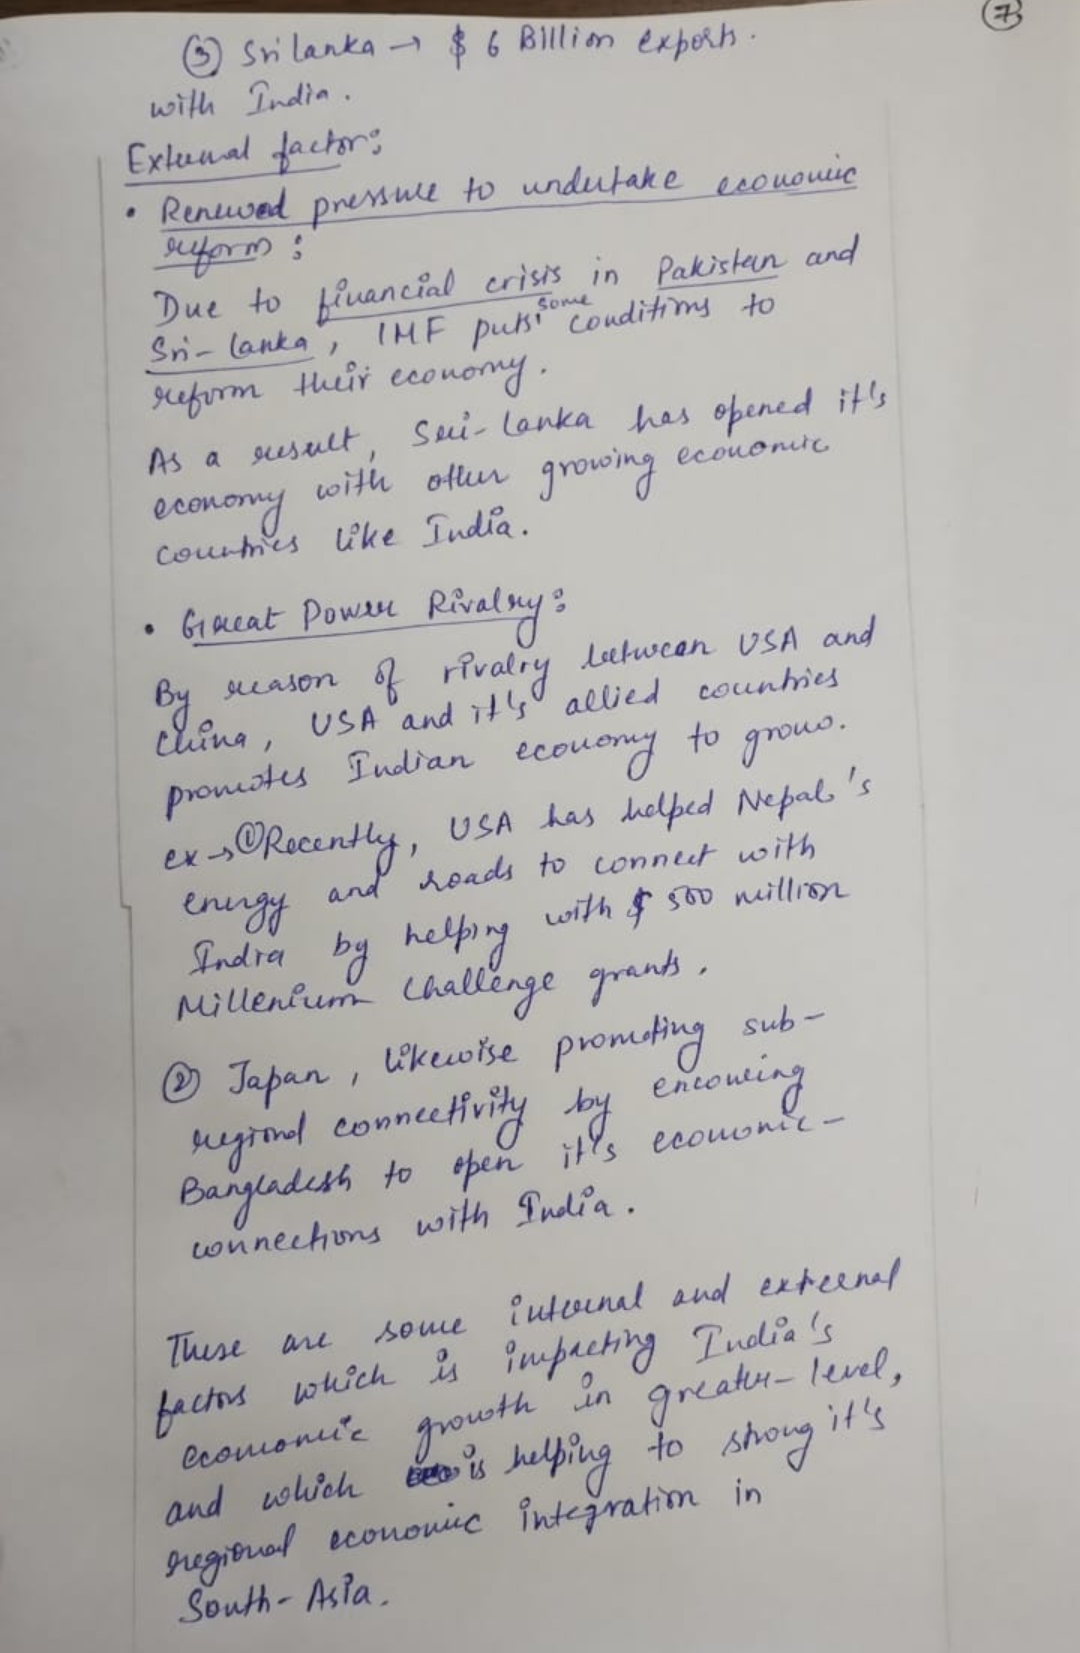 7
③ Sri lanka → $ 6 Billion exports.
with India.
External factor:
• Renewed pressure to undertake economic
reform:
Due to financial crisis in Pakistan and
Sri-lanka, IMF puts some conditions to
reform their economy.
As a result, Sri-lanka has opened it's
economy with other growing economic
countries like India.
• Great Power Rivalry:
By reason of rivalry between USA and
China, USA and it's allied countries
promotes Indian economy to grow.
ex → ① Recently, USA has helped Nepal's
energy and roads to connect with
India by helping with $ 500 million
Millenium Challenge grants.
② Japan, likewise promoting sub-
regional connectivity by
Bangladesh to open it's economic-
connections with India.
These are some internal and external
factors which is impacting India's
economic growth in greater-level,
and which is helping to strong it's
regional economic integration in
South-Asia.